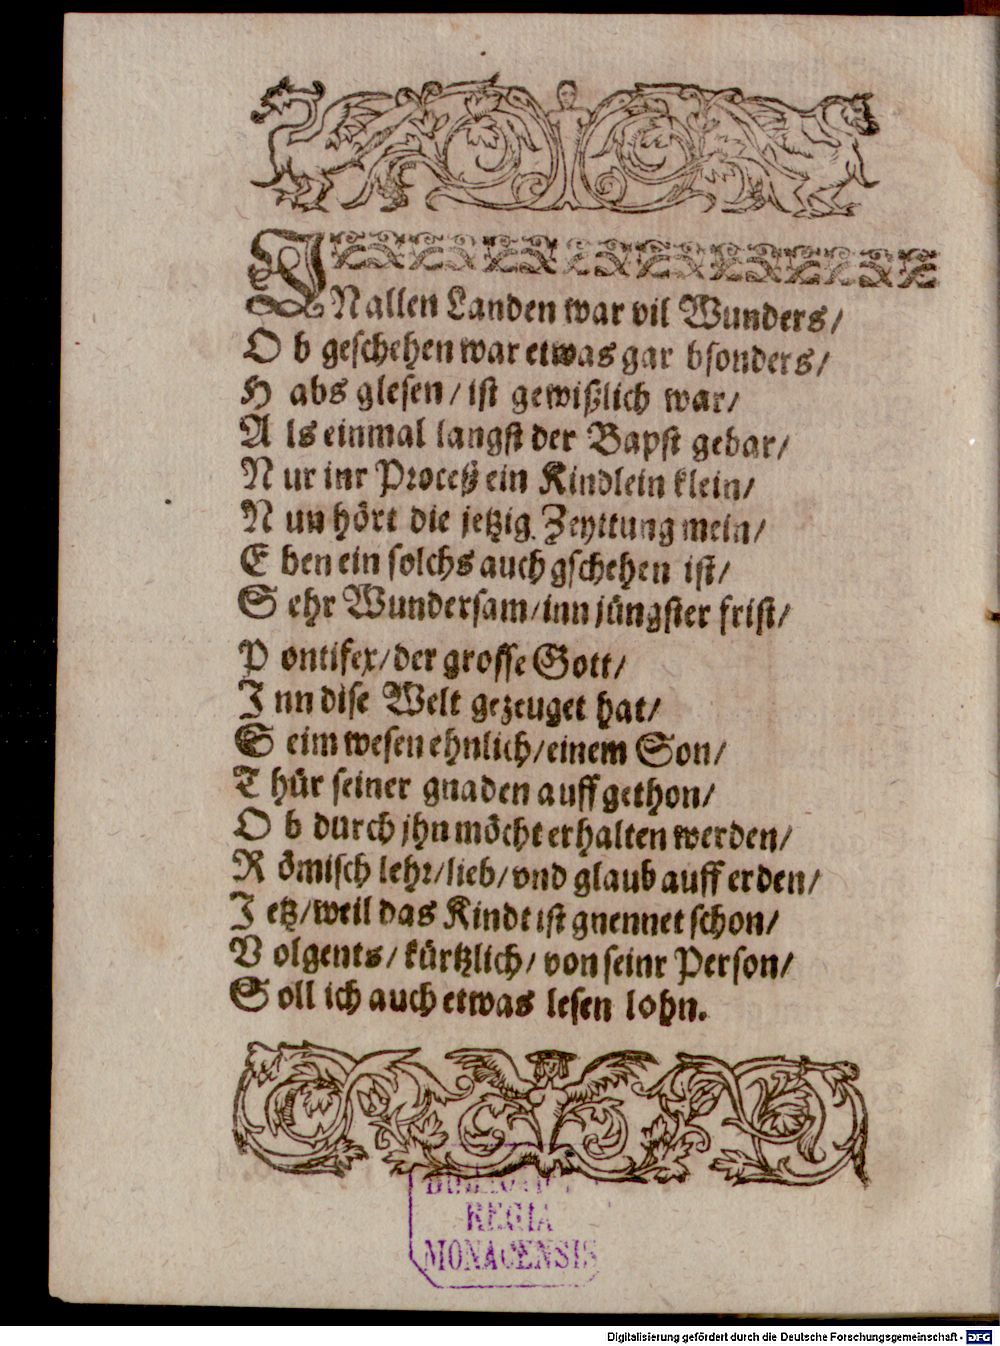 JN allen Landen war vil Wunders/
O b geschehen war etwas gar bsonders/
H abs glesen/ ist gewißlich war/
A ls einmal langst der Bapst gebar/
N ur inr Proceß ein Kindlein klein/
N un hört die jetzig Zeyttung mein/
E ben ein solchs auch gschehen ist/
S ehr Wundersam/ inn jüngster frist/
P ontifex/ der grosse Gott/
I nn dise Welt gezeuget hat/
S eim wesen ehnlich/ einem Son/
T hür seiner gnaden auff gethon/
O b durch jhn möcht erhalten werden/
R ömisch lehr/ lieb/ vnd glaub auff erden/
J etz/ weil das Kindt ist gnennet schon/
V olgents/ kürtzlich/ von seinr Person/
S oll ich auch etwas lesen lohn.
REGIA
MONACENSIS
Digitalisierung gefördert durch die Deutsche Forschungsgemeinschaft - DFG